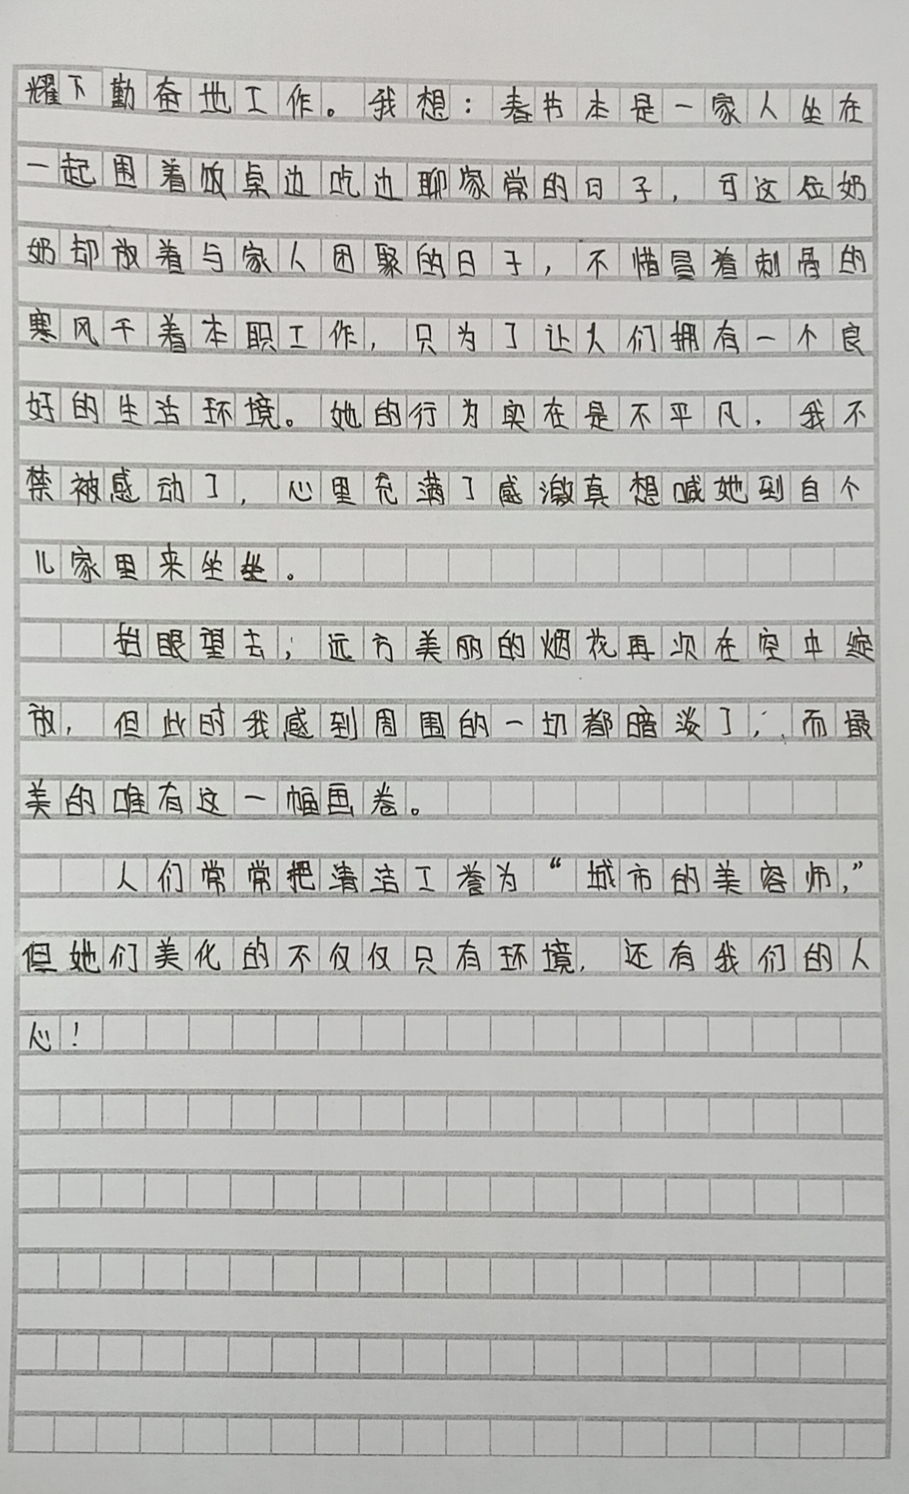 耀下勤奋地工作。我想：春节本是一家人坐在
一起围着饭桌边吃边聊家常的日子，可这位奶
奶却放着与家人团聚的日子，不惜冒着刺骨的
寒风干着本职工作，只为了让人们拥有一个良
好的生活环境。她的行为实在是不平凡，我不
禁被感动了，心里充满了感激真想喊她到自个
儿家里来坐坐。
抬眼望去；远方美丽的烟花再次在空中绽
放，但此时我感到周围的一切都暗淡了；而最
美的唯有这一幅画卷。
人们常常把清洁工誉为“城市的美容师，”
但她们美化的不仅仅只有环境，还有我们的人
心！